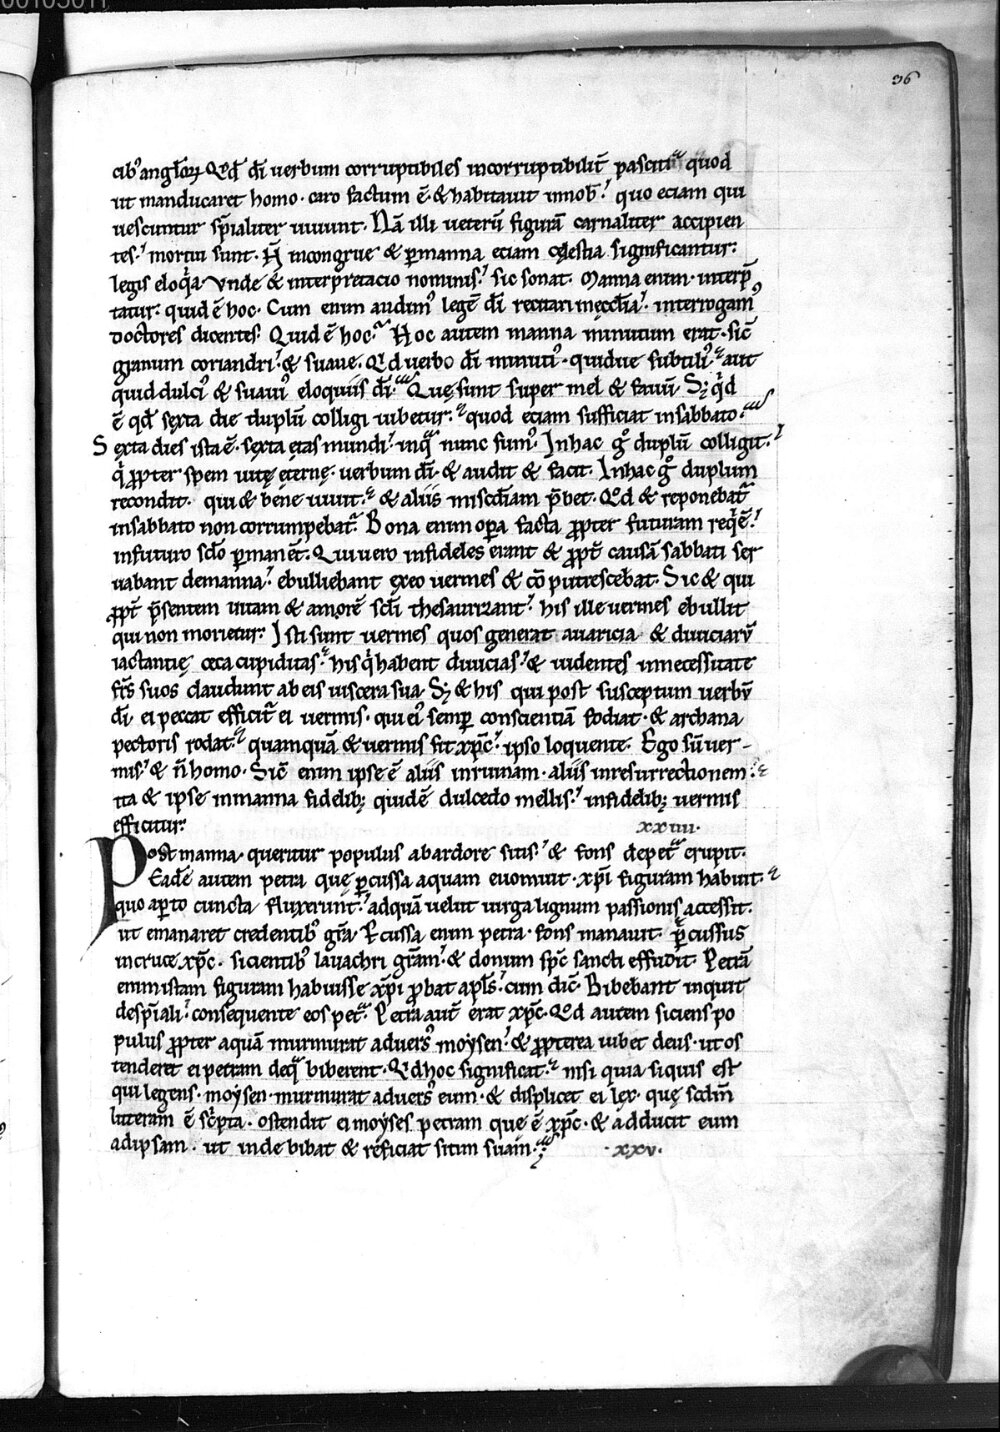 00105011
36
cib' angl̄oꝝ. Qd̄ dī uerbum corruptibiles incorruptibilit̄ pascit. quod
ut manducaret homo. caro factum ē. & habitauit innob̄. quo eciam qui
uescuntur sp̄ialiter uiuunt. Nā illi ueterū figurā carnaliter accipien
tes. mortui sunt. H̄ incongrue & ꝑmanna eciam cęlestia significantur.
legis eloq̄a. Vnde & interpretacio nominis. sic sonat. Manna enim. interp̄
tatur. quid ē hoc. Cum enim audim' legē dī recitari inęcclīa. interrogam'
doctores dicentes. Quid ē hoc. Hoc autem manna minutum erat. sic̄
granum coriandri. & suaue. Qd uerbo dī minuti'. quidue subtili'. aut
quid dulci' & suaui' eloquiis dī. Quę sunt super mel & fauū. Sꝫ q̇d
ē qd̄ sexta die duplū colligi iubetur. quod eciam sufficiat insabbato.
Sexta dies ista ē. sexta etas mundi. inq̄ nunc sum'. Inhac gͦ duplū colligit.
q̇ ꝓpter spem uitę ęternę. uerbum dī. & audit & facit. Inhac gͦ duplum
recondit. qui & bene uiuit. & aliis miscd̄iam p̄bet. Qd & reponebat̄
insabbato non corrumpebat̄. Bona enim oꝑa facta ꝓpter futuram req̇ē.
infuturo scl̄o ꝑmanēt. Qui uero infideles erant & ꝓpt̄ causā sabbati ser
uabant demanna. ebulliebant exeo uermes & cō putrescebat. Sic & qui
ꝓpt̄ p̄sentem uitam & amorē scl̄i thesaurizant. his ille uermes ebullit
qui non morietur. Isti sunt uermes quos generat auaricia & diuiciarū
iactantię ceca cupiditas. his q̇ habent diuicias. & uidentes innecessitate
fr̄s suos claudunt ab eis uiscera sua. Sꝫ & his qui post susceptum uerbū
dī. ei peccat efficit̄ ei uermis. qui ei' semꝑ conscientiā fodiat. & archana
pectoris rodat. quamquā & uermis fit xp̄c. ipso loquente. Ego sū uer-
mis. & n̄ homo. Sic̄ enim ipse ē aliis inruinam. aliis inresurrectionem.
ita & ipse inmanna fidelibꝫ quidē dulcedo mellis. infidelibꝫ uermis
efficitur. xxiiii.
Post manna. queritur populus abardore sitis. & fons depet̄ erupit.
Eadē autem petra quę ꝑcussa aquam euomuit. xp̄i figuram habuit.
quo aꝑto cuncta fluxerunt. adquā uelut uirga lignum passionis accessit.
ut emanaret credentib' gr̄a. Ꝑcussa enim petra. fons manauit. ꝑcussus
incruce xp̄c. sicientib' lauachri gr̄am. & donum sp̄c sancti effudit. Petrā
enim istam figuram habuisse xp̄i ꝓbat apl̄s. cum dic̄. Bibebant inquit
desp̄iali. consequente eos pet̄. Petra aut̄ erat xp̄c. Qd autem siciens po
pulus ꝓpter aquā murmurat aduers' moysen. & ꝓpterea iubet deus. ut os
tenderet ei petram deq̄ biberent. Qd hoc significat. nisi quia siquis est
qui legens. moysen. murmurat aduers' eum. & displicet ei lex. quę scdm̄
litteram ē sc̄pta. ostendit ei moyses petram que ē xp̄c. & adducit eum
adipsam. ut inde bibat & reficiat sitim suam. xxv.